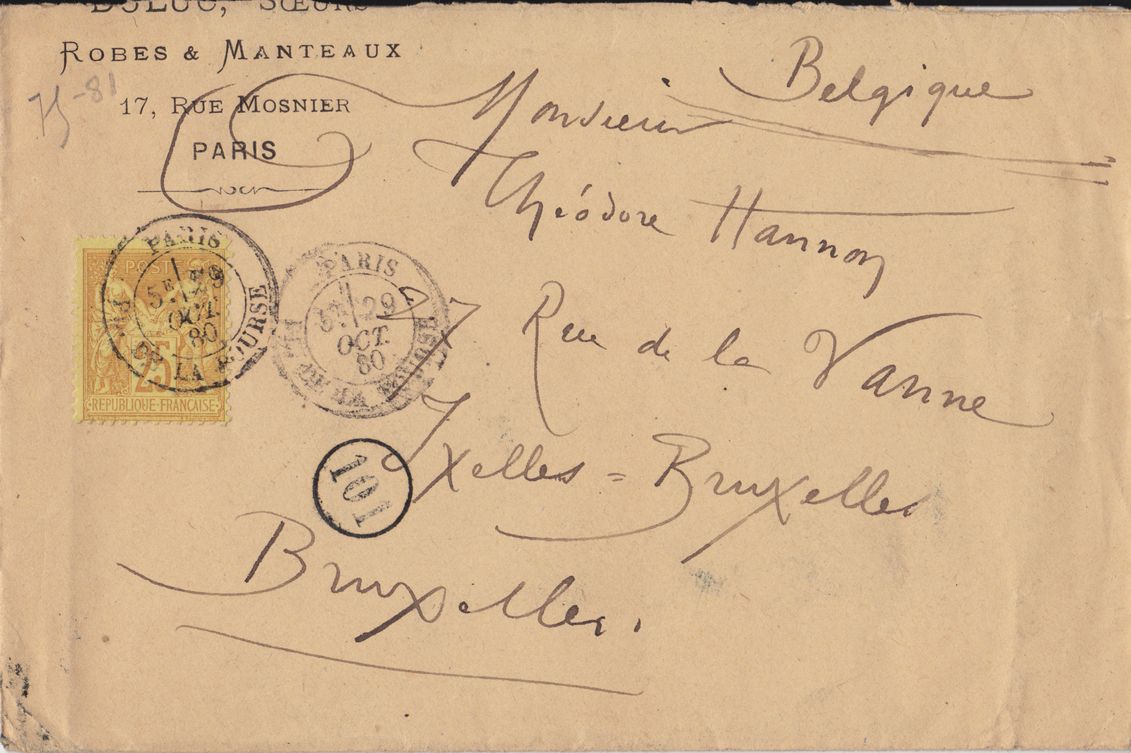 DULUC, SŒURS
ROBES & MANTEAUX
17, RUE MOSNIER
PARIS
75-81
Belgique
Monsieur
Théodore Hannon
Rue de la Vanne
Ixelles = Bruxelles
Bruxelles.
PARIS
5E 29
OCT.
80
PL. DE LA BOURSE
POST
25
REPUBLIQUE FRANÇAISE
PARIS
5E 29
OCT.
80
PL. DE LA BOURSE
101